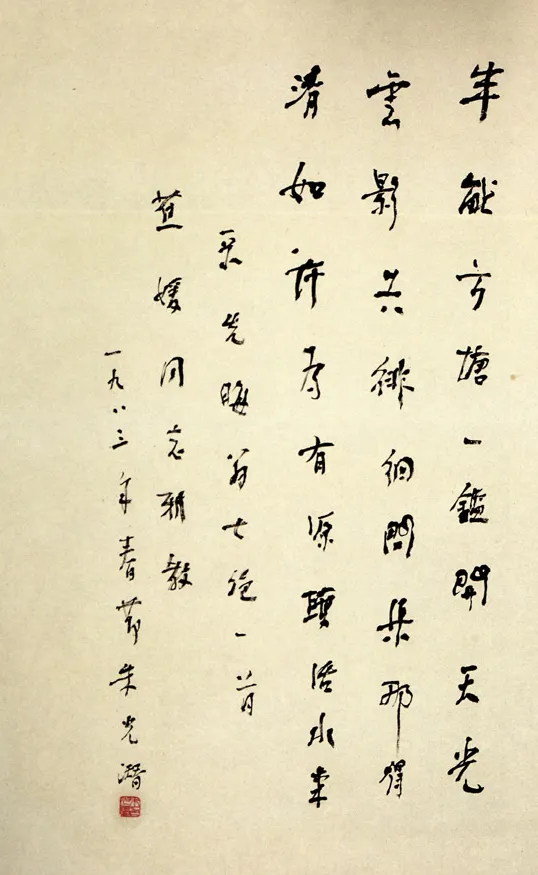 半畝方塘一鑑開天光
雲影共徘徊問渠那得
清如許為有源頭活水來
录先晦翁七絶一首
媛同志雅教
一九八三年春節朱光潛